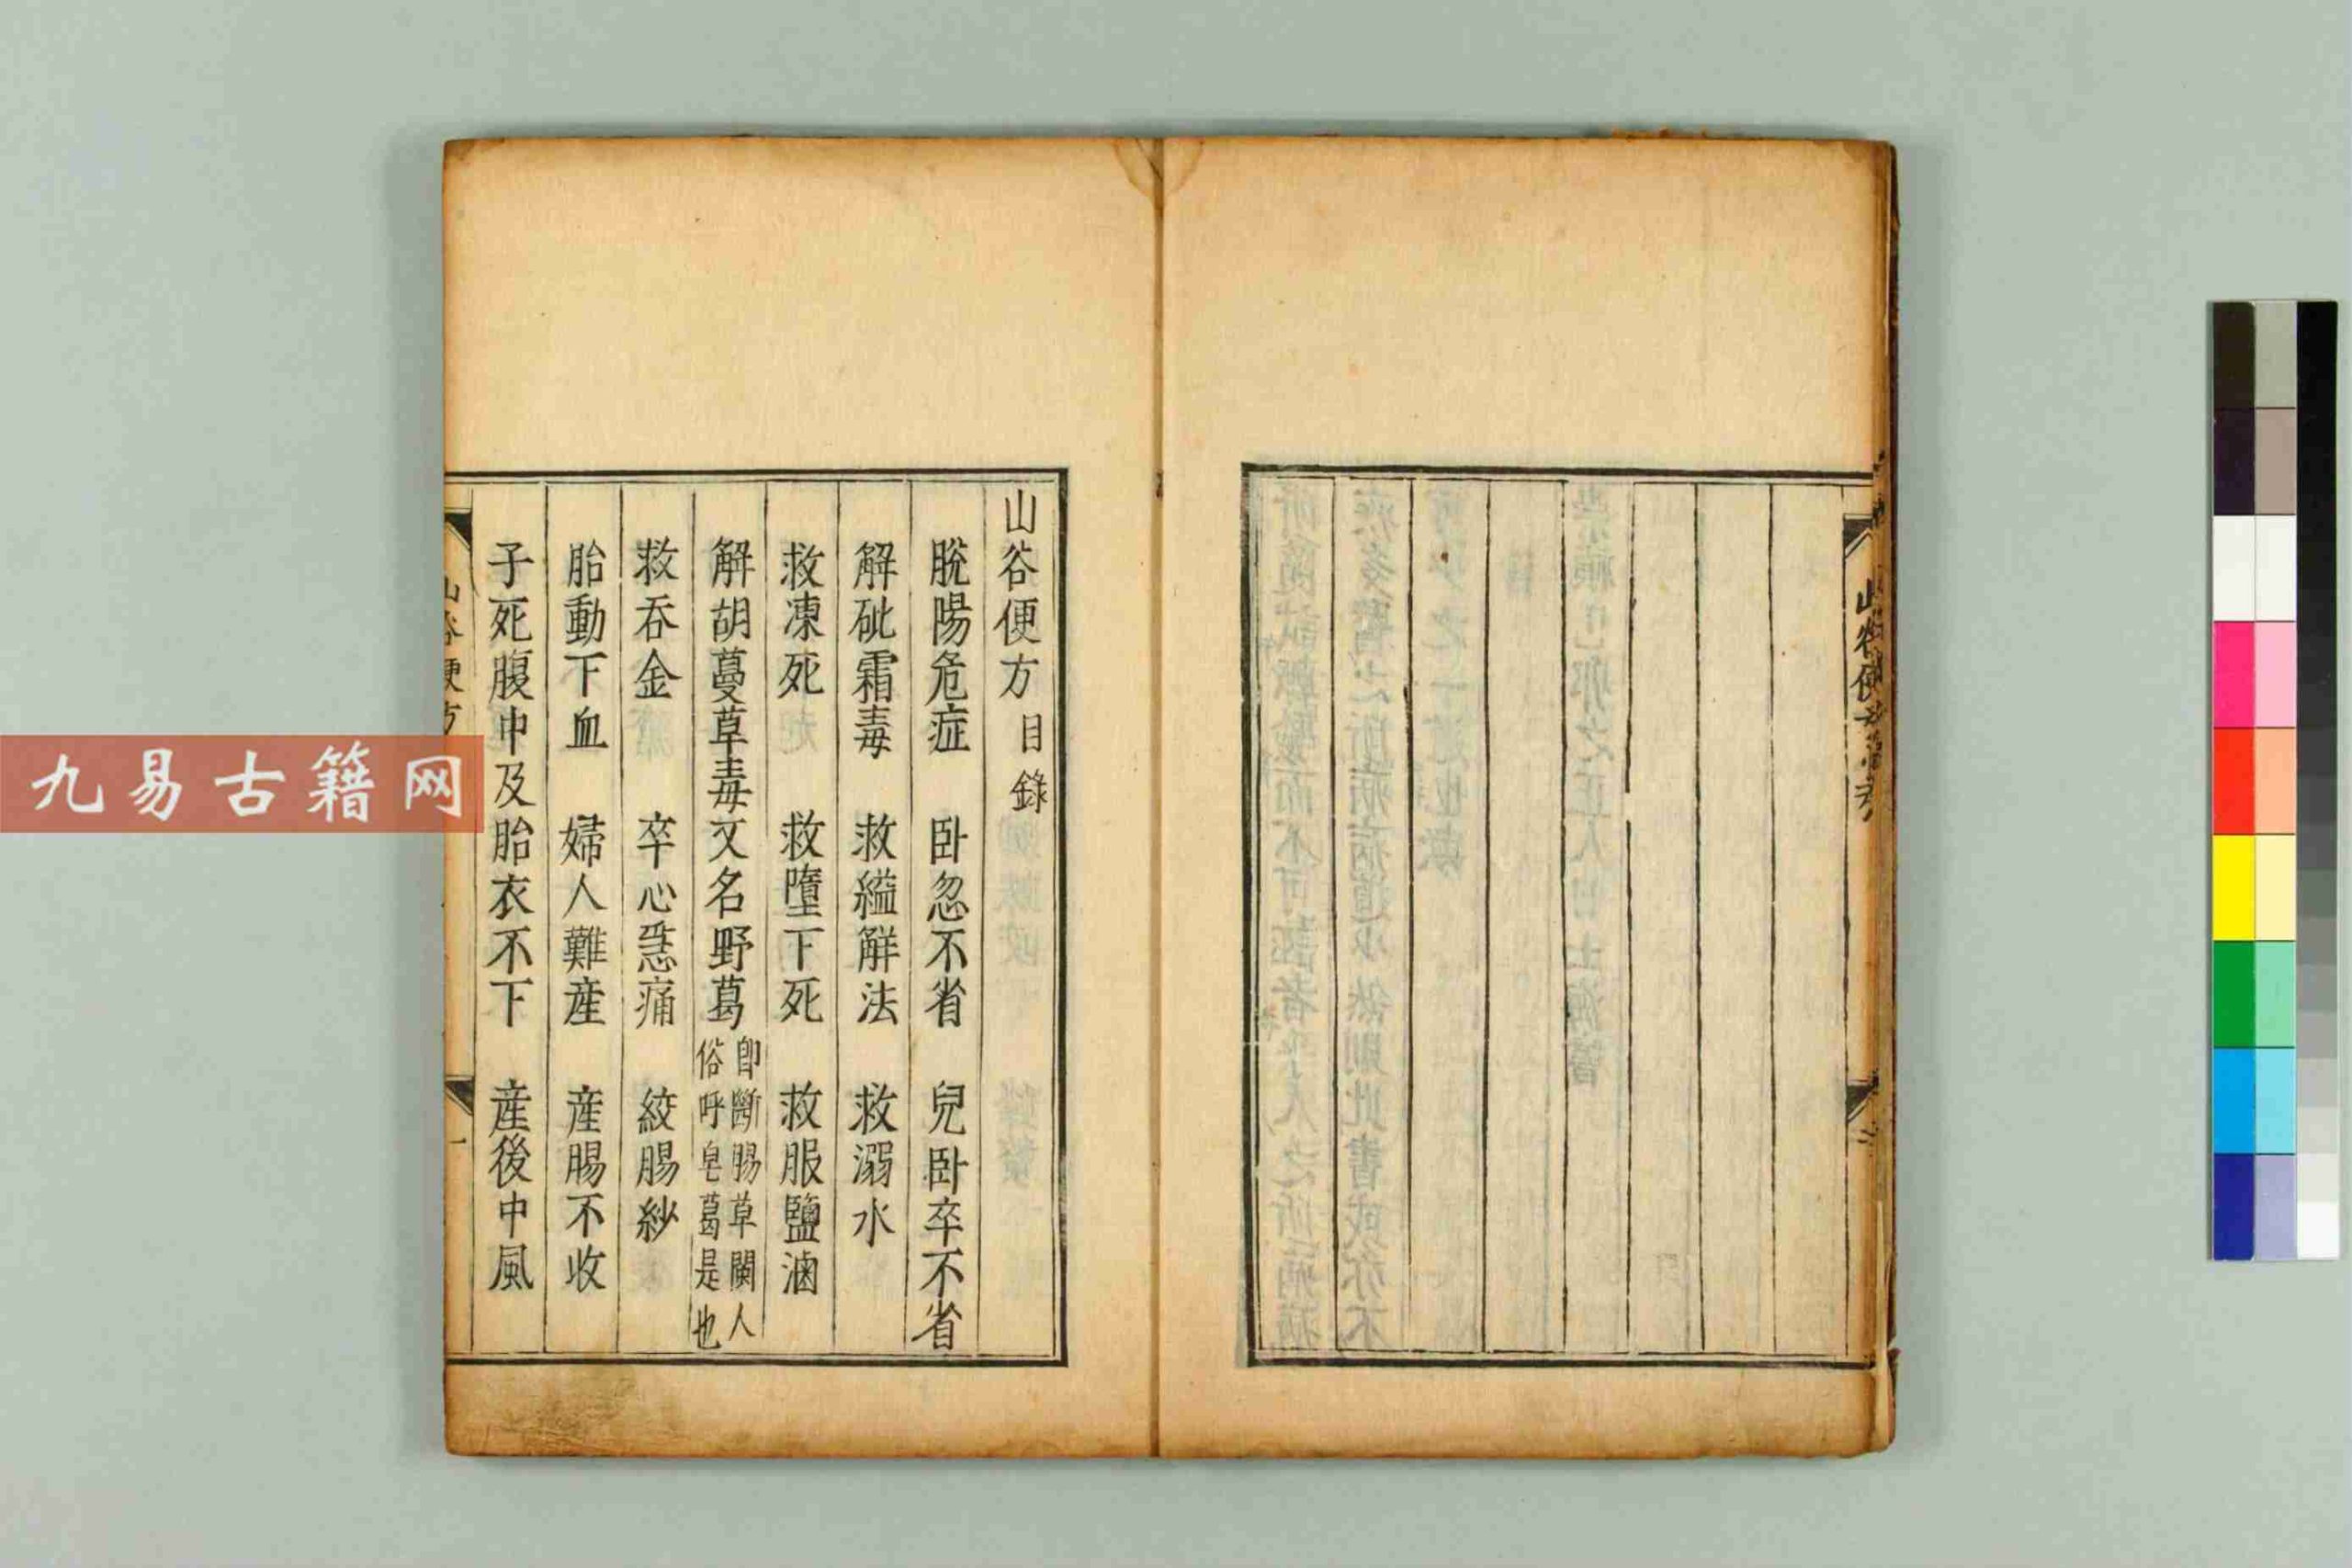 山谷便方目錄
脫陽危症 卧忽不省 兒卧卒不省
解砒霜毒 救縊解法 救溺水
救凍死 救墮下死 救服鹽滷
解胡蔓草毒又名野葛 卽斷腸草閩人俗呼皂葛是也
救吞金 卒心恶痛 絞腸紗
胎動下血 婦人難產 產腸不收
子死腹中及胎衣不下 產後中風
山谷便方
一
山谷便方
二
九易古籍网